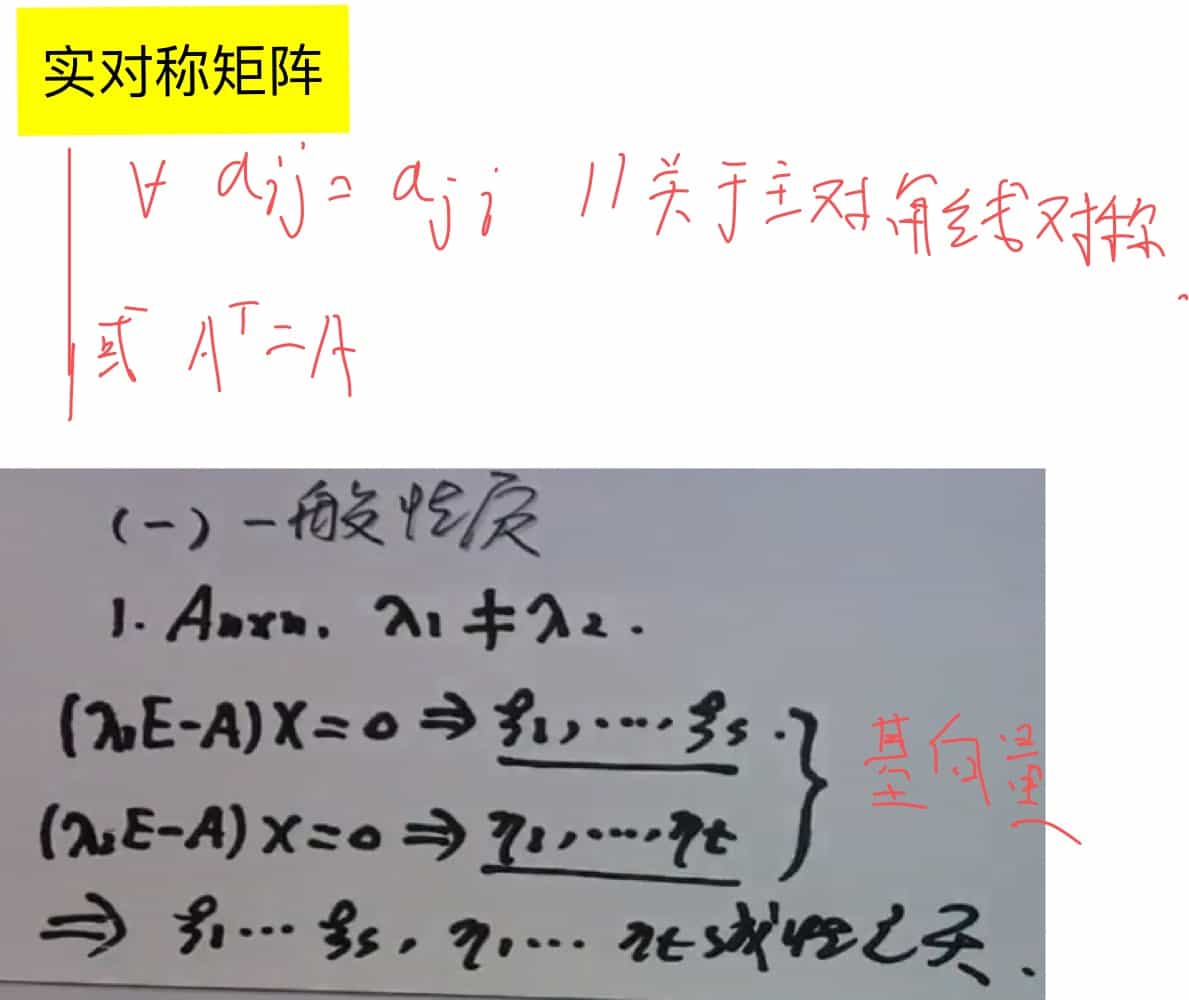 实对称矩阵
∀ aij = aji //关于主对角线对称.
或 A^T = A
(一) 一般性质
1. An×n, λ1 ≠ λ2.
(λ1E-A)X=0 ⇒ ξ1, ..., ξs.
基向量
(λ2E-A)X=0 ⇒ η1, ..., ηt
⇒ ξ1 ... ξs, η1 ... ηt 线性无关.